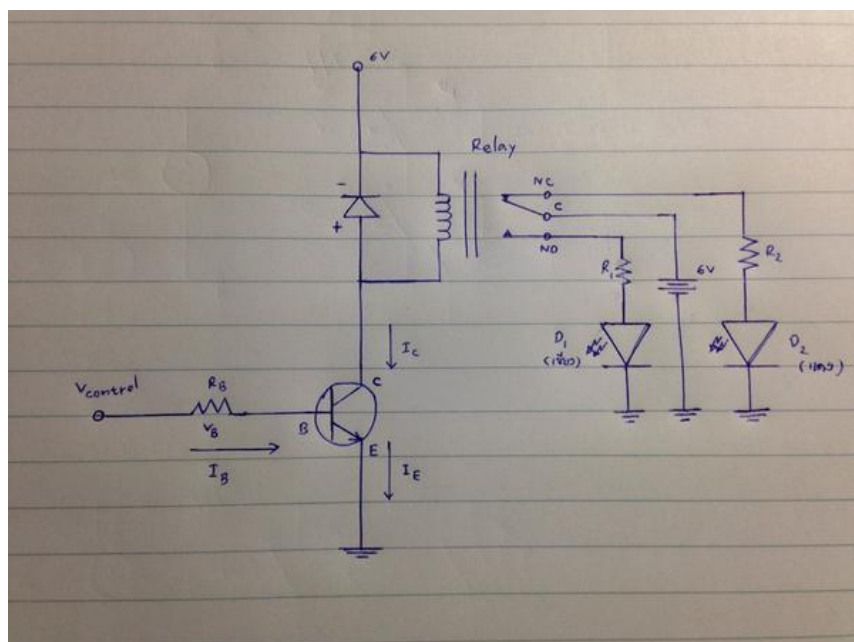 6V
Relay
-
+
NC
C
NO
R₁
6V
R₂
D₁
(เขียว)
D₂
(แดง)
I_C
V_control
R_B
V_B
I_B
B
C
E
I_E